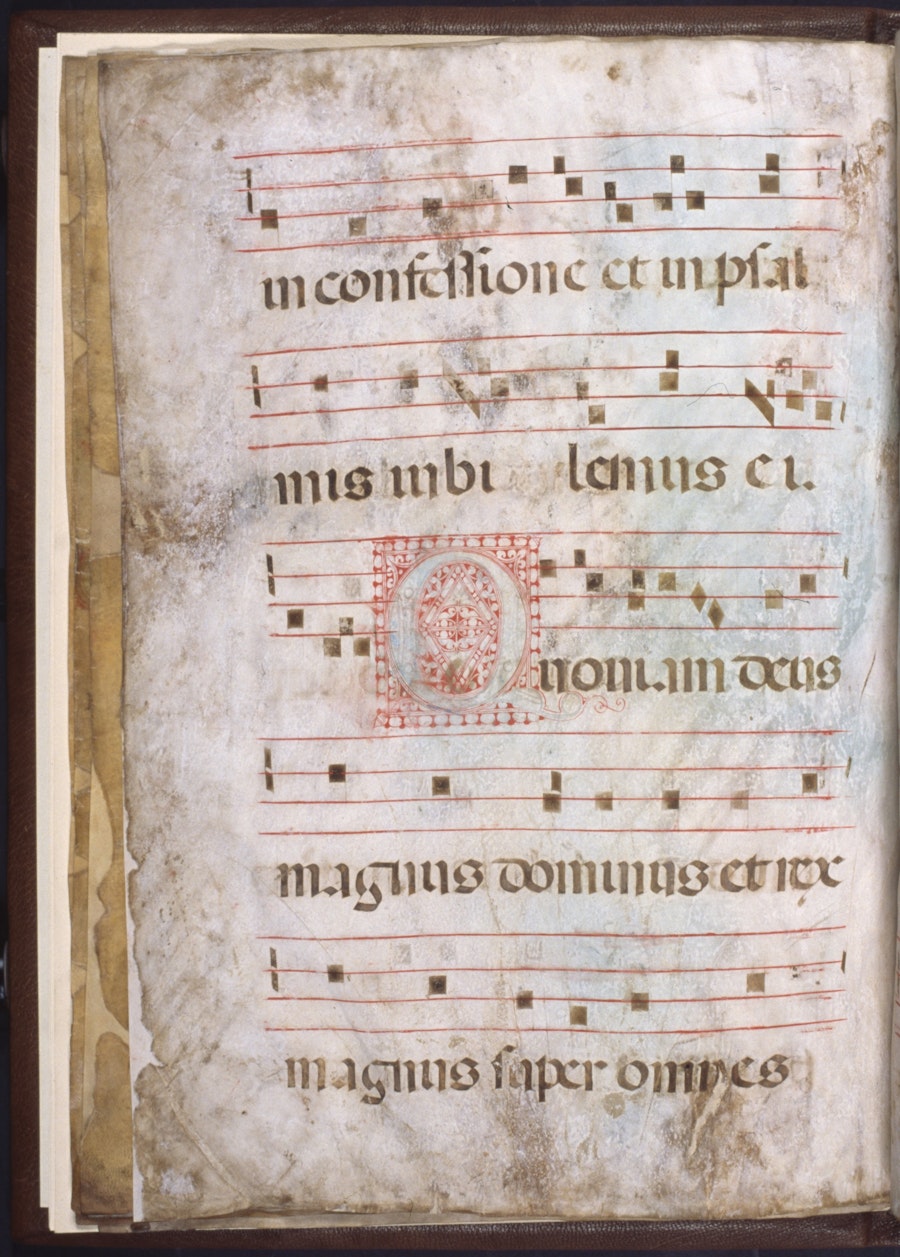 in confessione et in psal
mis iubi lemus ei.
Quoniam deus
magnus dominus et rex
magnus super omnes